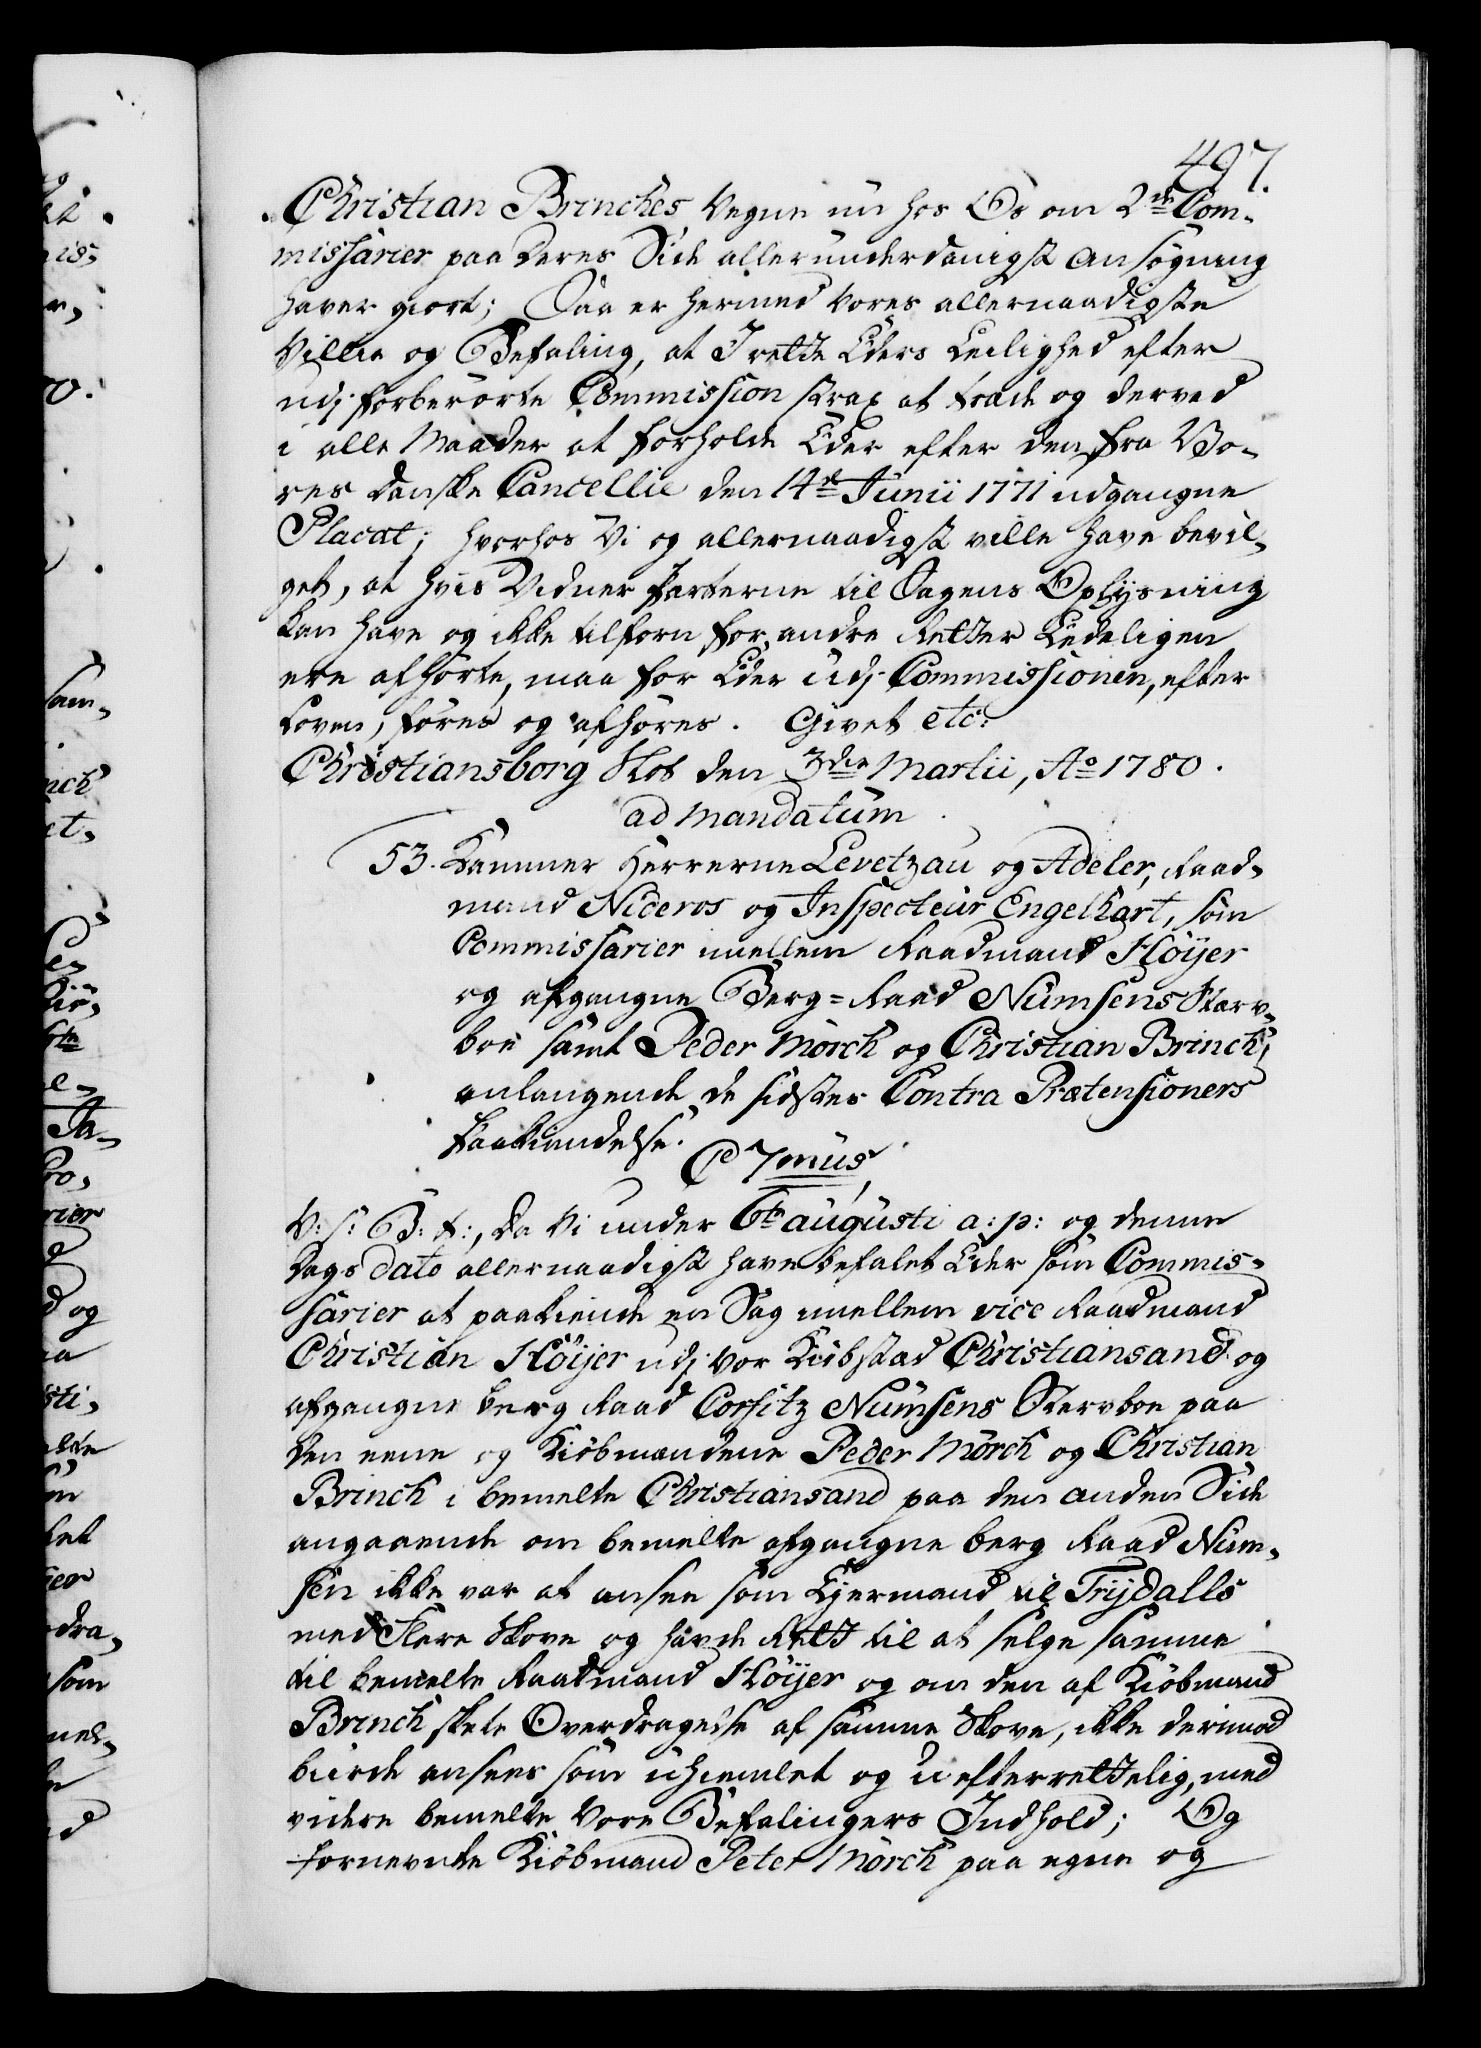 497.
Christian Brinches Vegne nu hos Os om 2de Com-
missarier paa deres Side allerunderdanigst Ansøgning
haver giort; Saa er hermed Vores allernaadigste
Villie og Befaling, at I rette Eders Leilighed efter
udj forberørte Commission strax at træde og derved
i alle Maader at forholde Eder efter den fra Vo-
res Danske Cancellie den 14de Junii 1771 udgangne
Placat; hvorhos Vi og allernaadigst ville have bevil-
get, at hvis Vidner Parterne til Sagens Oplysning
kan have og ikke tilforn for andre Retter Lædeligen
ere afhørte, maa for Eder udj Commissionen, efter
Loven, føres og afhøres. Givet etc:
Christiansborg Slot den 3die Martii, Ao 1780.
ad mandatum
53. Kammer Herrerne Levetzau og Adeler, Raad-
mand Nideros og Inspecteur Engelhart, som
Commissarier imellem Raadmand Høijer
og afgangne Berg-Raad Numsens Sterv-
boe samt Peder Mørch og Christian Brinch,
anlangende de sidstes Contra Prætensioners
Paakiendelse.
C 7mus
V: s: G: t:, Da Vi under 6te augusti a: p: og denne
Dags dato allernaadigst have befalet Eder som Commis-
sarier at paakiende en Sag imellem vice Raadmand
Christian Høijer udj vor Kiøbstad Christiansand og
afgangne berg Raad Corfitz Numsens Stervboe paa
den eene og Kiøbmændene Peder Mørch og Christian
Brinch i bemelte Christiansand paa den anden Side
angaaende om bemelte afgangne berg Raad Num-
sen ikke var at ansee som Ejermand til Trijdalls
med flere Skove og havde Rett til at selge samme
til bemelte Raadmand Høijer og om den af Kiøbmand
Brinch skete Overdragelse af samme Skove, ikke derimod
burde ansees som uhiemlet og uefterrettelig, med
videre bemelte Vore Befalingers Indhold; Og
fornevnte Kiøbmand Peter Mørch paa egne og